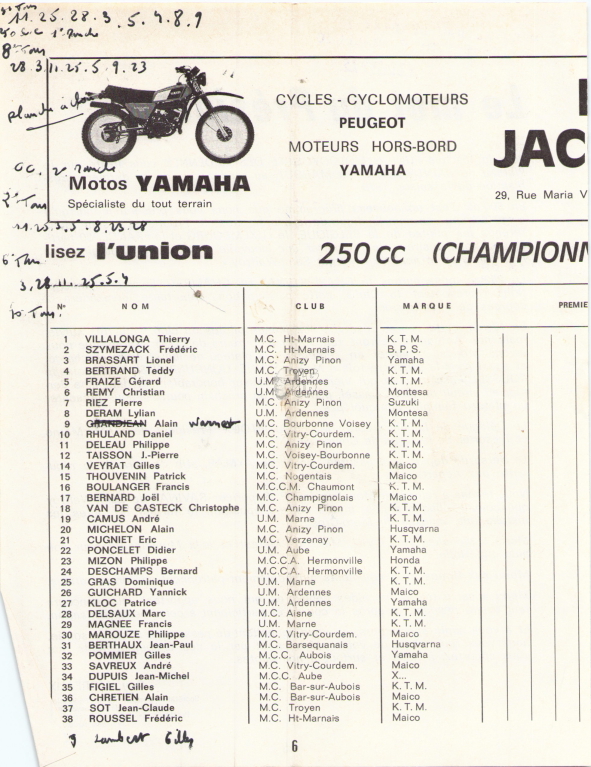 11.25.28.3.5.4.8.9
8e Tour
28.3.11.25.5.9.23
CYCLES - CYCLOMOTEURS
PEUGEOT
MOTEURS HORS-BORD
YAMAHA
JAC
29, Rue Maria V
Motos YAMAHA
Spécialiste du tout terrain
2e Tour
11.25.3.5.8.23.28
lisez l'union
250 cc (CHAMPIONN
6e Tour
3.28.11.25.5.4
10 Tour
N° NOM CLUB MARQUE PREMIE
1 VILLALONGA Thierry M.C. Ht-Marnais K.T.M.
2 SZYMEZACK Frédéric M.C. Ht-Marnais B.P.S.
3 BRASSART Lionel M.C. Anizy Pinon Yamaha
4 BERTRAND Teddy M.C. Troyen K.T.M.
5 FRAIZE Gérard U.M. Ardennes K.T.M.
6 REMY Christian U.M. Ardennes Montesa
7 RIEZ Pierre M.C. Anizy Pinon Suzuki
8 DERAM Lylian U.M. Ardennes Montesa
9 GRANDJEAN Alain M.C. Bourbonne Voisey K.T.M.
10 RHULAND Daniel M.C. Vitry-Courdem. K.T.M.
11 DELEAU Philippe M.C. Anizy Pinon K.T.M.
12 TAISSON J.-Pierre M.C. Voisey-Bourbonne K.T.M.
14 VEYRAT Gilles M.C. Vitry-Courdem. Maico
15 THOUVENIN Patrick M.C. Nogentais Maico
16 BOULANGER Francis M.C.C.M. Chaumont K.T.M.
17 BERNARD Joël M.C. Champignolais Maico
18 VAN DE CASTECK Christophe M.C. Anizy Pinon K.T.M.
19 CAMUS André U.M. Marne K.T.M.
20 MICHELON Alain M.C. Anizy Pinon Husqvarna
21 CUGNIET Eric M.C. Verzenay K.T.M.
22 PONCELET Didier U.M. Aube Yamaha
23 MIZON Philippe M.C.C.A. Hermonville Honda
24 DESCHAMPS Bernard M.C.C.A. Hermonville K.T.M.
25 GRAS Dominique U.M. Marna K.T.M.
26 GUICHARD Yannick U.M. Ardennes Maico
27 KLOC Patrice U.M. Ardennes Yamaha
28 DELSAUX Marc M.C. Aisne K.T.M.
29 MAGNEE Francis U.M. Marne K.T.M.
30 MAROUZE Philippe M.C. Vitry-Courdem. Maico
31 BERTHAUX Jean-Paul M.C. Barsequanais Husqvarna
32 POMMIER Gilles M.C.C. Aubois Yamaha
33 SAVREUX André M.C. Vitry-Courdem. Maico
34 DUPUIS Jean-Michel M.C.C. Aube X...
35 FIGIEL Gilles M.C. Bar-sur-Aubois K.T.M.
36 CHRETIEN Alain M.C. Bar-sur-Aubois Maico
37 SOT Jean-Claude M.C. Troyen K.T.M.
38 ROUSSEL Frédéric M.C. Ht-Marnais Maico
Lambert Gilles
6